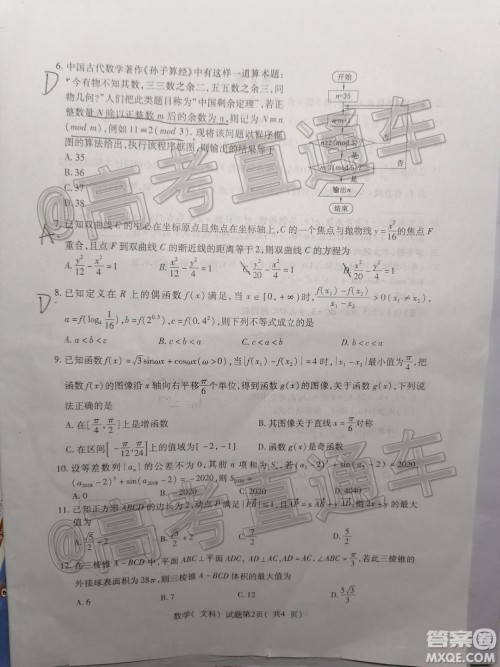 6. 中国古代数学著作《孙子算经》中有这样一道算术题:
D
"今有物不知其数,三三数之余二,五五数之余三,问
物几何?"人们把此类题目称为"中国剩余定理",若正
整数量N除以正整数m后的余数为n,则记为N≡n
(mod m),例如11≡2(mod 3). 现将该问题以程序框
图的算法给出,执行该程序框图,则输出的结果等于
A. 35
B. 36
C. 37
D. 38
开始
n=35
n≡2(mod 3)
否
是
否
是
输出n
结束
7. 已知双曲线C的中心在坐标原点且焦点在坐标轴上,C的一个焦点与抛物线y=x²/16的焦点F
A
重合,且点F到双曲线C的渐近线的距离等于2,则双曲线C的方程为
A. y²/12-x²/4=1 B. x²/12-y²/4=1 C. y²/20-x²/4=1 D. x²/20-y²/4=1
8. 已知定义在R上的偶函数f(x)满足,当x∈[0,+∞)时,(f(x₁)-f(x₂))/(x₁-x₂)>0(x₁≠x₂),
D
c=f(0.4²),则下列不等式成立的是
A. a<b<c B. c<b<a C. b<a<c D. b<c<a
9. 已知函数f(x)=√3sinωx+cosωx(ω>0),当|f(x₁)-f(x₂)|=4时,|x₁-x₂|最小值为π/4,把
函数f(x)的图像沿x轴向右平移π/6个单位,得到函数g(x)的图像,关于函数g(x),下列说
法正确的是
A. 在[π/4,π/2]上是增函数 B. 其图像关于直线x=π/4对称
C. 在区间[-π/12,π/24]上的值域为[-2,-1] D. 函数g(x)是奇函数
10. 设等差数列{aₙ}的公差不为0,其前n项和为Sₙ,
则S₂₀₁₉=
A. 0 B. -2020 C. 2020 D. 4040
11. 已知正方形ABCD的边长为2,动点P满足|PB|=1,且AP=xAB+yAD,则2x+y的最大
值为
D. 5/2
12. 在三棱锥A-BCD中,平面ABC⊥平面ABD,AD⊥AC,AD=AC=AB,若此三棱锥的
外接球表面积为28π,则三棱锥A-BCD体积的最大值为
A. 6 B. 7 C. 12 D. 5√3/3
数学(文科) 试题第2页(共4页)
@高考直通车
@高考直通车
答案圈
MXQE.COM